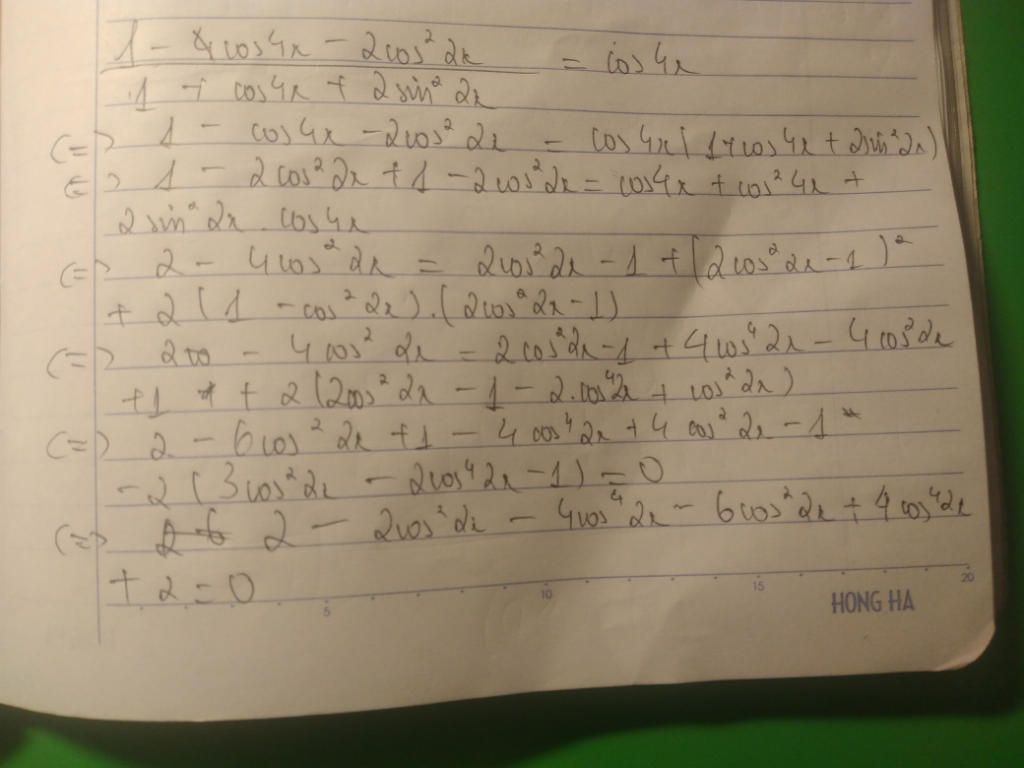 1 - cos4x - 2cos² 2x = cos4x
1 + cos4x + 2sin² 2x
(=) 1 - cos4x - 2cos² 2x = cos4x(1+cos4x + 2sin²2x)
(=) 1 - 2cos²2x + 1 - 2cos²2x = cos4x + cos²4x +
2sin² 2x . cos4x
(=) 2 - 4cos² 2x = 2cos²2x - 1 + (2cos²2x - 1)²
+ 2(1 - cos² 2x).(2cos²2x - 1)
(=) 2 - 4cos² 2x = 2cos²2x - 1 + 4cos⁴2x - 4cos²2x
+1 + 2(2cos² 2x - 1 - 2.cos⁴2x + cos² 2x)
(=) 2 - 6cos² 2x + 1 - 4cos⁴2x + 4cos² 2x - 1
- 2(3cos²2x - 2cos⁴2x - 1) = 0
(=) 2 - 2cos²2x - 4cos⁴2x - 6cos²2x + 4cos⁴2x
+ 2 = 0
5 10 15 20
HONG HA